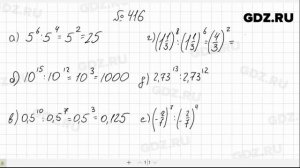 GDZ.RU
№ 416
а) 5⁶ : 5⁴ = 5² = 25
г) (1 1/3)⁸ : (1 1/3)⁶ = (4/3)² =
б) 10¹⁵ : 10¹² = 10³ = 1000
д) 2,73 : 2,73¹²
в) 0,5¹⁰ : 0,5⁷ = 0,5³ = 0,125
1 / 1